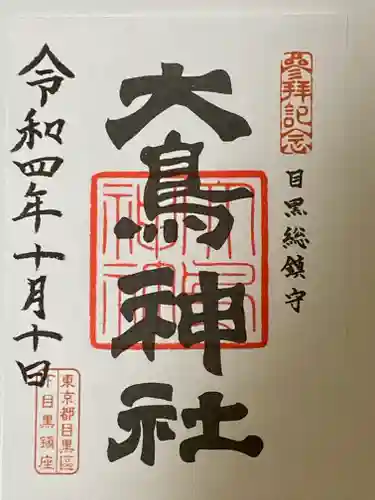 參拜記念
目黒総鎮守
大鳥神社
令和四年十月十日
東京都目黒區
下目黒鎮座